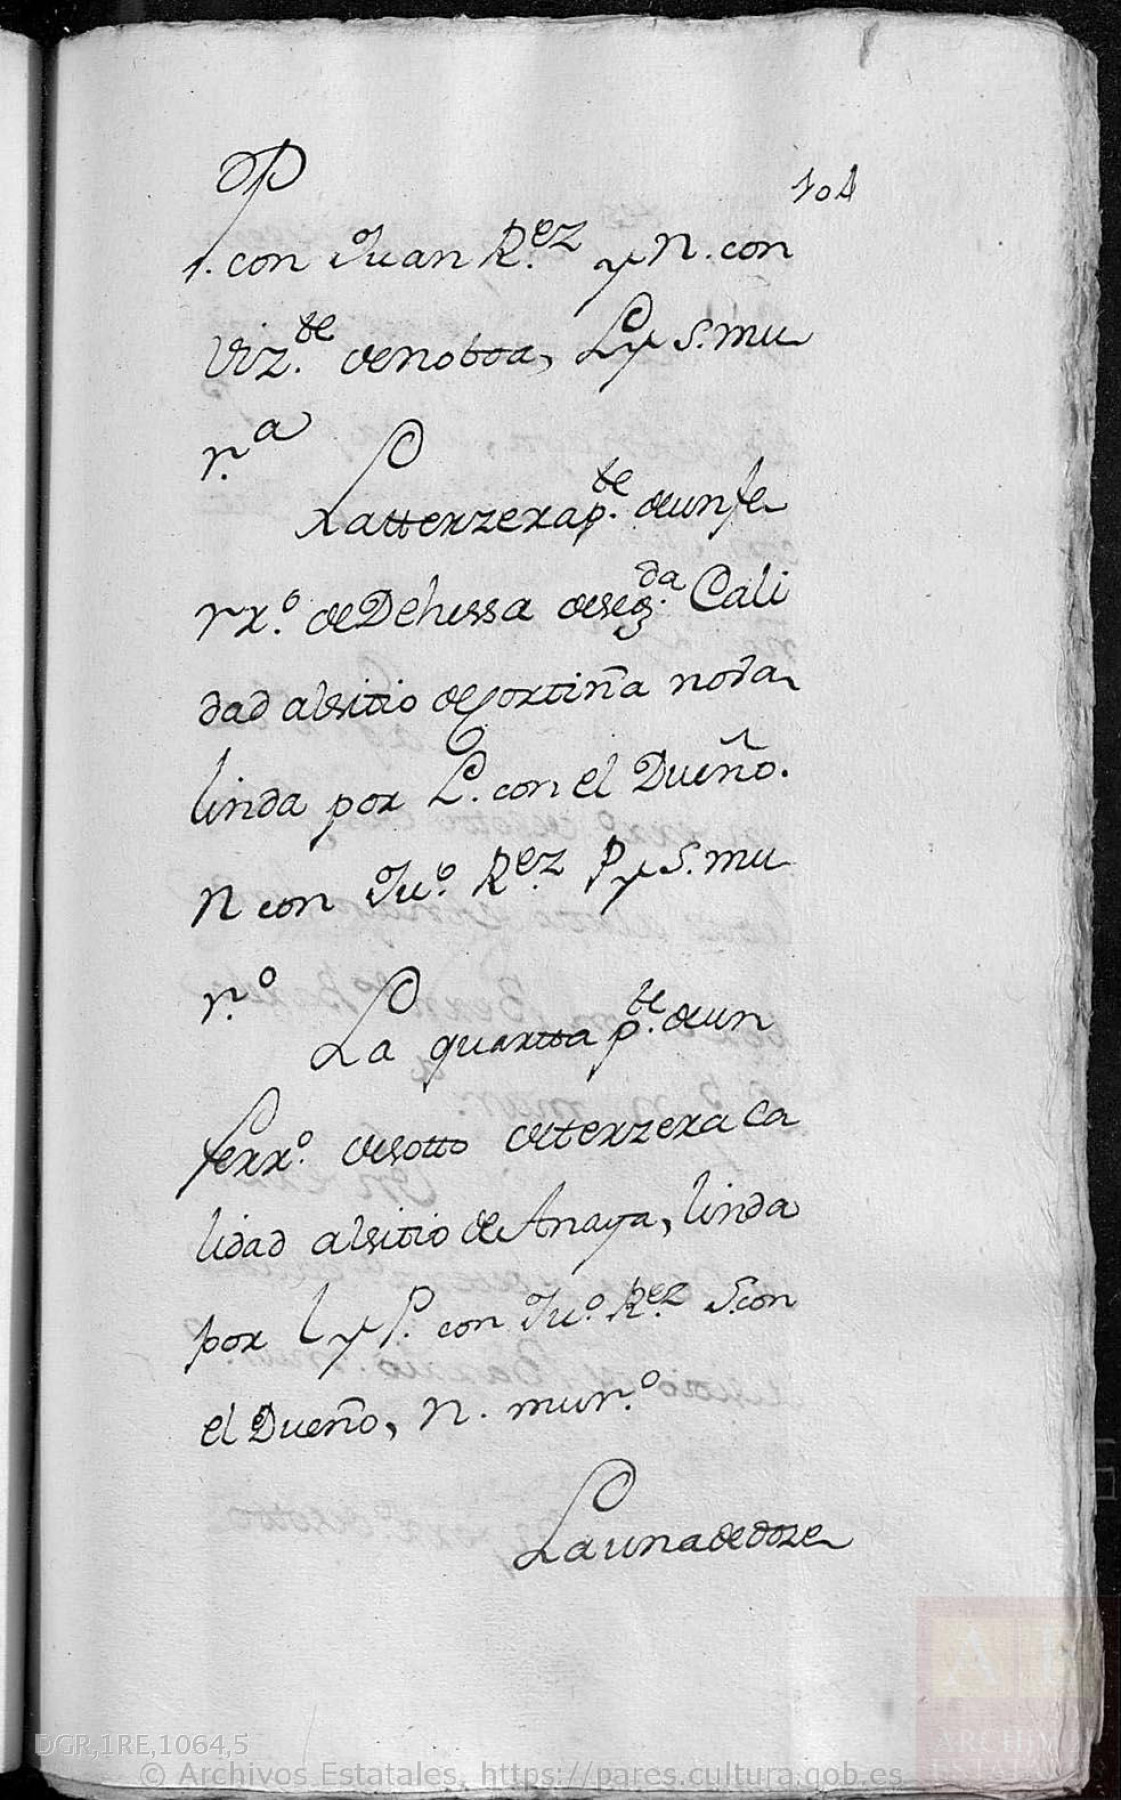 P
104
1. con Juan R.ez y N. con
Viz.te de nobtoa, L y S. mu
r.a
La tterzera p.te de un fe
rr.o de Dehessa de seg.da Cali
dad al sitio de Cortiña noda
linda por L. con el Dueño.
N con Ju.o R.ez P y S. mu
r.o
La quartta p.te de un
ferr.o de sotto de terzera Ca
lidad al sitio de Anaya, linda
por L y P. con Ju.o R.ez S. con
el Dueño, N. mur.o
La una de doze
DGR,1RE,1064,5
© Archivos Estatales, https://pares.cultura.gob.es